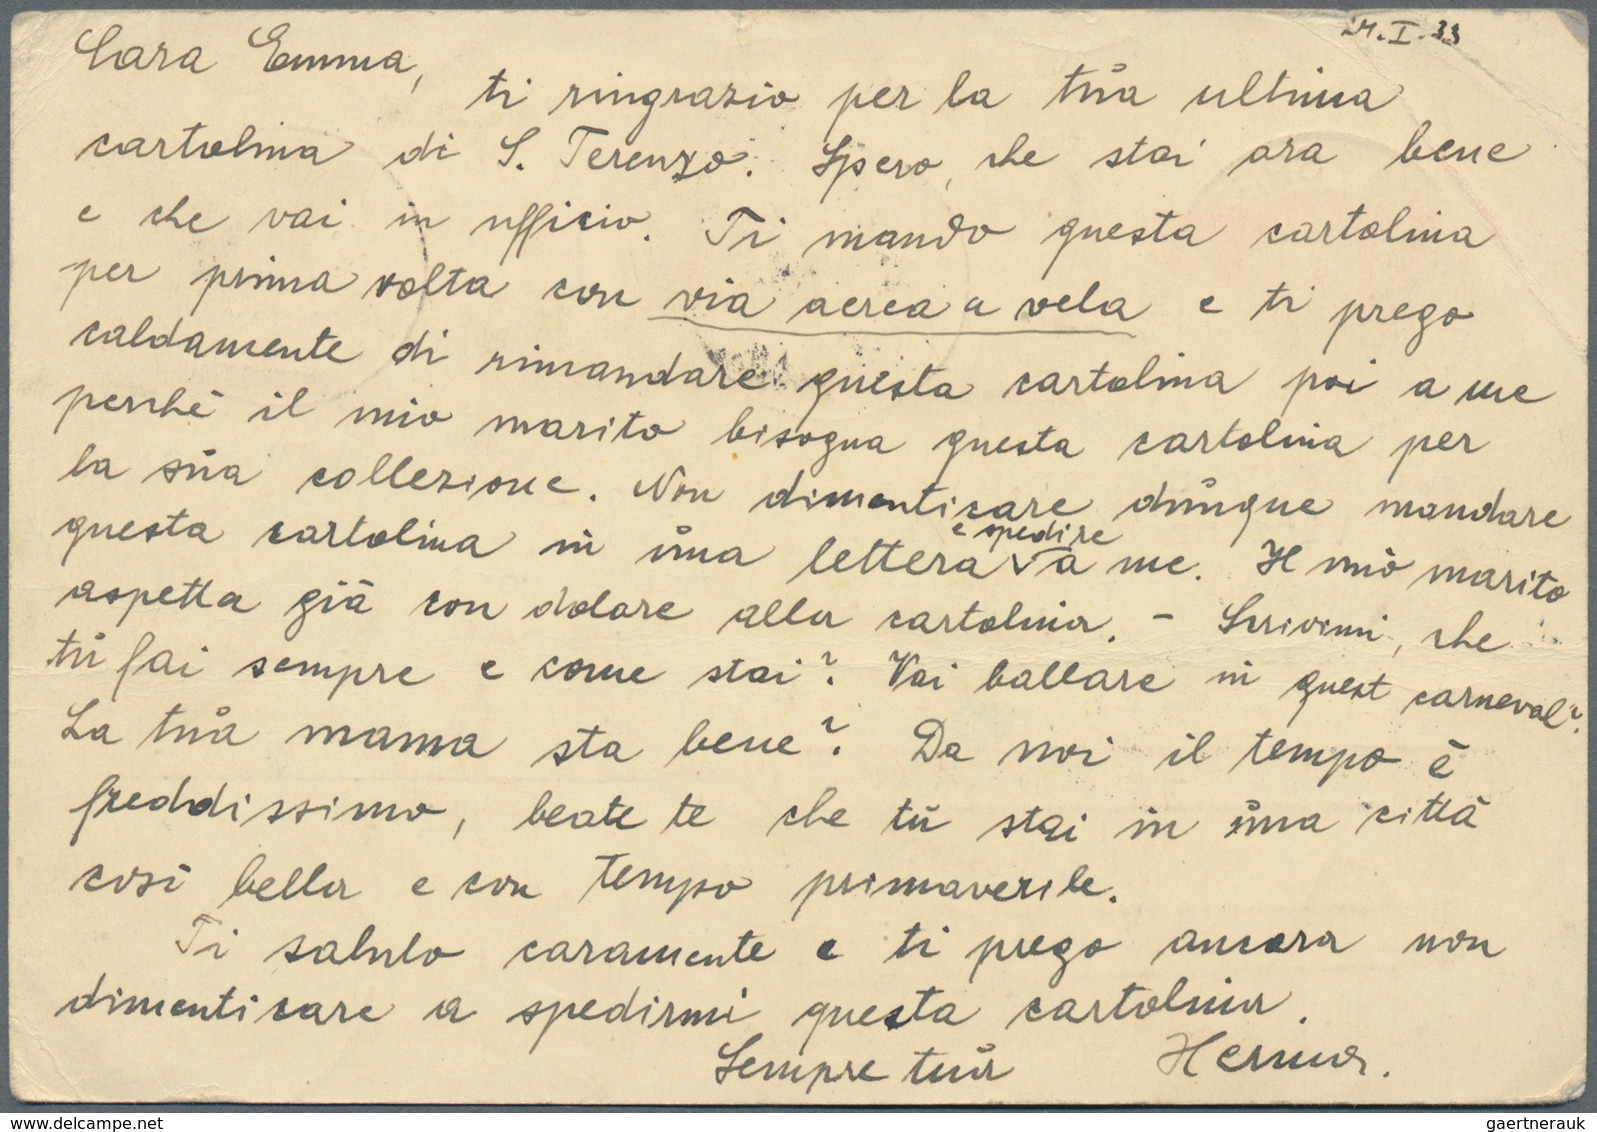 24.I.33
Cara Emma,
ti ringrazio per la tua ultima
cartolina di S. Terenzo. Spero, che stai ora bene
e che vai in ufficio. Ti mando questa cartolina
per prima volta con via aerea a vela e ti prego
caldamente di rimandare questa cartolina poi a me
perchè il mio marito bisogna questa cartolina per
la sua collezione. Non dimenticare dunque mandare
e spedire
questa cartolina in una lettera √ a me. Il mio marito
aspetta già con dolore alla cartolina. – Scrivimi, che
tu fai sempre e come stai? Vai ballare in quest carneval?
La tua mama sta bene? Da noi il tempo è
freddissimo, beate te che tu stai in una città
così bella e con tempo primaverile.
Ti saluto caramente e ti prego ancora non
dimenticare a spedirmi questa cartolina.
Sempre tua Herma.
www.delcampe.net
gaertnerauk